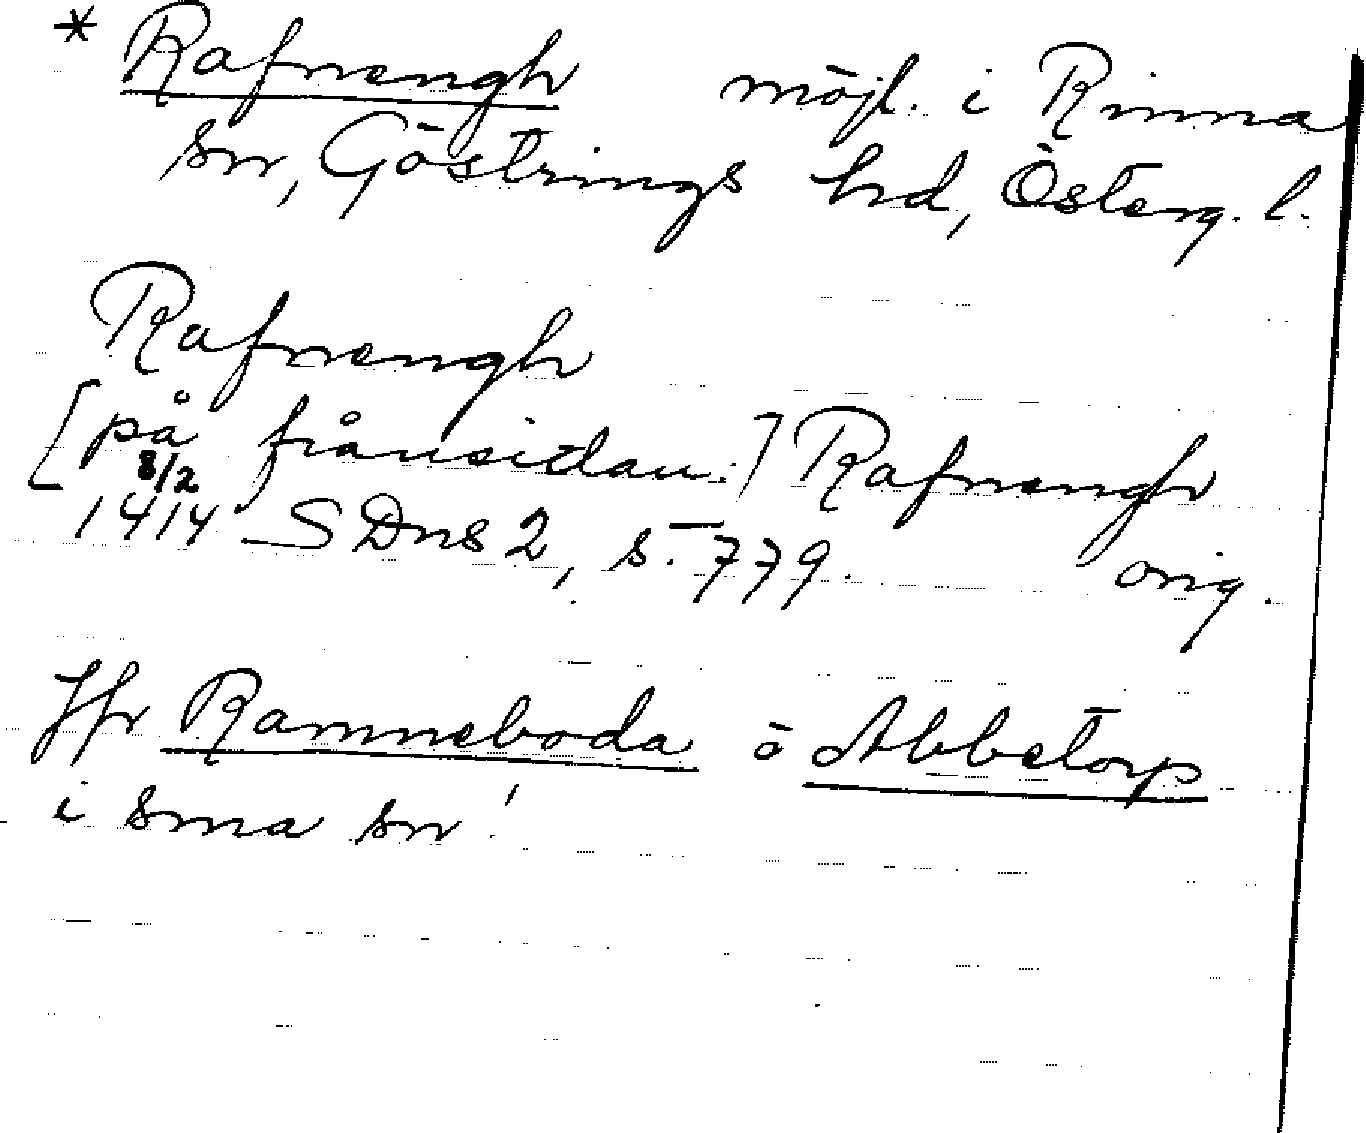 * Rafnengh möjl. i Rinna
sn, Göstrings hd, Österg. l.
Rafnengh
[på frånsidan.] Rafnengh
8/2
1414 SDns 2, s. 779. orig.
Jfr Ramneboda o Abbetorp
i sma sn!